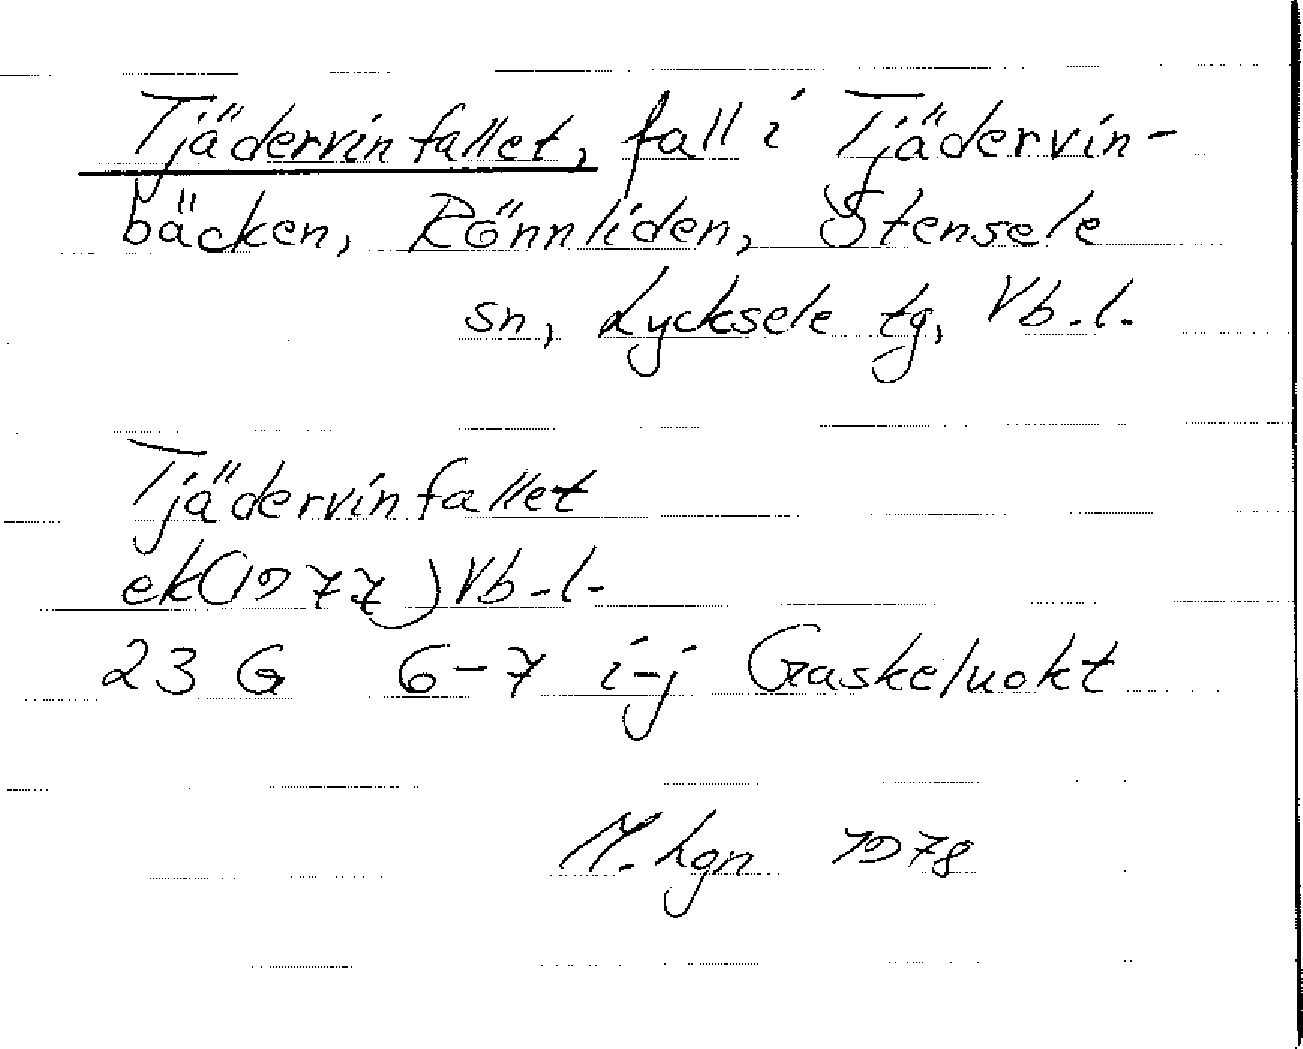 Tjädervinfallet, fall i Tjädervin-
bäcken, Rönnliden, Stensele
sn, Lycksele tg, Vb.l.
Tjädervinfallet
ek(1977)Vb.l.
23 G 6-7 i-j Gaskeluokt
M. Lgn 1978